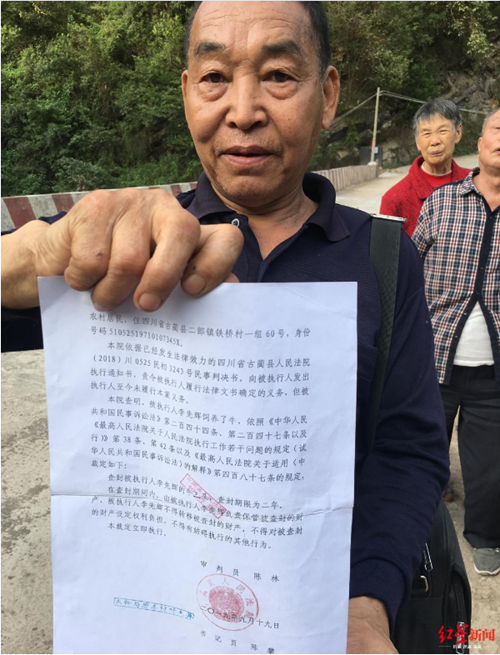 农村居民，住四川省古蔺县二郎镇铁桥村一组60号，身份
号码510525197101073​45X。
本院依据已经发生法律效力的四川省古蔺县人民法院
（2018）川0525民初3243号民事判决书，向被执行人发出
执行通知书，责令被执行人履行法律文书确定的义务，但被
执行人至今未履行本案义务。
本院查明，被执行人李先辉饲养了牛，依照《中华人民
共和国民事诉讼法》第二百四十四条、第二百四十七条以及
《最高人民法院关于人民法院执行工作若干问题的规定（试
行）》第38条、第42条以及《最高人民法院关于适用〈中
华人民共和国民事诉讼法〉的解释》第四百八十七条的规定，
裁定如下：
查封被执行人李先辉的牛，查封期限为二年。
在查封期间内，但被执行人李先辉负责保管被查封的财
产，被执行人李先辉不得转移被查封的财产，不得对被查封
的财产设定权利负担，不得有妨碍执行的其他行为。
本裁定立即执行。
审判员 陈林
二〇一九年 月十九日
书记员 陈肇
红星新闻